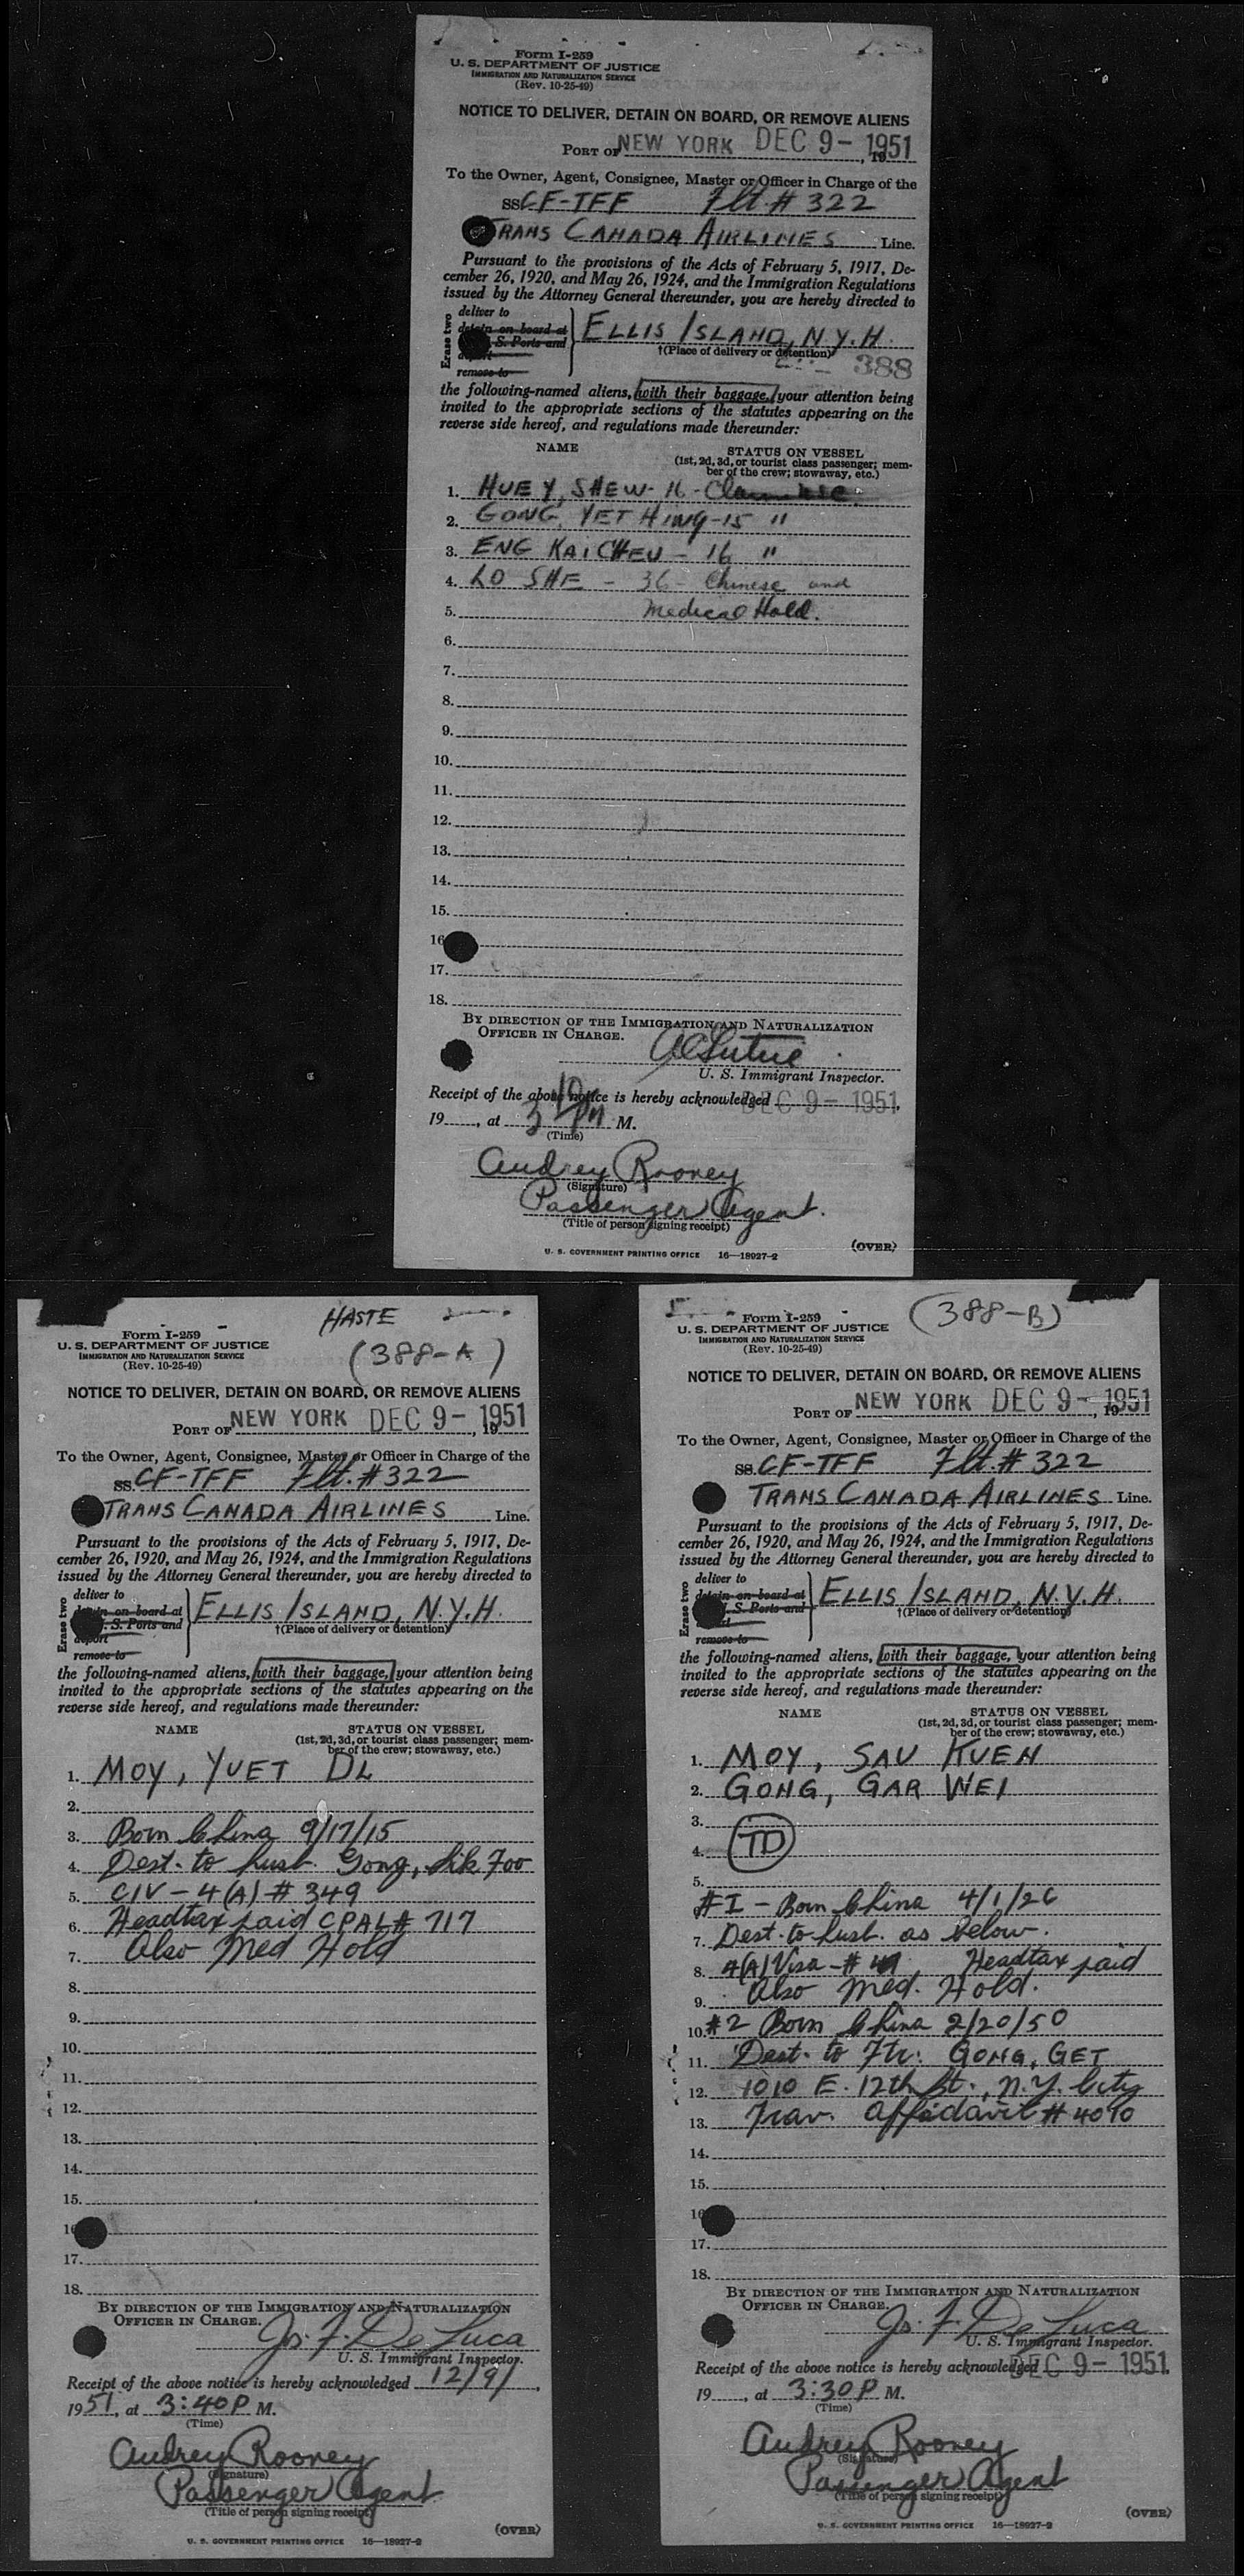 Form I-259
U. S. DEPARTMENT OF JUSTICE
IMMIGRATION AND NATURALIZATION SERVICE
(Rev. 10-25-49)
NOTICE TO DELIVER, DETAIN ON BOARD, OR REMOVE ALIENS
PORT OF NEW YORK DEC 9- 1951, 19
To the Owner, Agent, Consignee, Master or Officer in Charge of the
SS CF-TFF Flt. # 322
TRANS CANADA AIRLINES Line.
Pursuant to the provisions of the Acts of February 5, 1917, De-
cember 26, 1920, and May 26, 1924, and the Immigration Regulations
issued by the Attorney General thereunder, you are hereby directed to
Erase two
deliver to
detain on board at
S. Ports and
remove to
ELLIS ISLAND, N.Y.H.
†(Place of delivery or detention)
388
the following-named aliens, with their baggage, your attention being
invited to the appropriate sections of the statutes appearing on the
reverse side hereof, and regulations made thereunder:
NAME STATUS ON VESSEL
(1st, 2d, 3d, or tourist class passenger; mem-
ber of the crew; stowaway, etc.)
1. HUEY, SHEW - 16 -
2. GONG, YET HING - 15 "
3. ENG KAI CHEU - 16 "
4. LO SHE - 36 - Chinese and
5. Medical Hold.
6.
7.
8.
9.
10.
11.
12.
13.
14.
15.
16
17.
18.
BY DIRECTION OF THE IMMIGRATION AND NATURALIZATION
OFFICER IN CHARGE.
U. S. Immigrant Inspector.
Receipt of the above notice is hereby acknowledged DEC 9- 1951,
19, at 3 10 PM M.
(Time)
Audrey Rooney
(Signature)
Passenger Agent.
(Title of person signing receipt)
(OVER)
U. S. GOVERNMENT PRINTING OFFICE 16—18927-2
HASTE
Form I-259
U. S. DEPARTMENT OF JUSTICE
IMMIGRATION AND NATURALIZATION SERVICE
(Rev. 10-25-49)
(388-A)
NOTICE TO DELIVER, DETAIN ON BOARD, OR REMOVE ALIENS
PORT OF NEW YORK DEC 9- 1951, 19
To the Owner, Agent, Consignee, Master or Officer in Charge of the
SS CF-TFF Flt. # 322
TRANS CANADA AIRLINES Line.
Pursuant to the provisions of the Acts of February 5, 1917, De-
cember 26, 1920, and May 26, 1924, and the Immigration Regulations
issued by the Attorney General thereunder, you are hereby directed to
Erase two
deliver to
on board at
S. Ports and
deport
remove to
ELLIS ISLAND, N.Y.H.
†(Place of delivery or detention)
the following-named aliens, with their baggage, your attention being
invited to the appropriate sections of the statutes appearing on the
reverse side hereof, and regulations made thereunder:
NAME STATUS ON VESSEL
(1st, 2d, 3d, or tourist class passenger; mem-
ber of the crew; stowaway, etc.)
1. MOY, YUET DL
2.
3. Born China 9/17/15
4. Dest. to husb. Gong, Sik Foo
5. CIV - 4(A) # 349
6. Headtax paid CPAL# 717
7. Also Med Hold
8.
9.
10.
11.
12.
13.
14.
15.
16
17.
18.
BY DIRECTION OF THE IMMIGRATION AND NATURALIZATION
OFFICER IN CHARGE.
Js. F. De Luca
U. S. Immigrant Inspector.
Receipt of the above notice is hereby acknowledged 12/9/,
1951, at 3:40 P M.
(Time)
Audrey Rooney
(Signature)
Passenger Agent
(Title of person signing receipt)
(OVER)
U. S. GOVERNMENT PRINTING OFFICE 16—18927-2
Form I-259
U. S. DEPARTMENT OF JUSTICE
IMMIGRATION AND NATURALIZATION SERVICE
(Rev. 10-25-49)
(388-B)
NOTICE TO DELIVER, DETAIN ON BOARD, OR REMOVE ALIENS
PORT OF NEW YORK DEC 9- 1951, 19
To the Owner, Agent, Consignee, Master or Officer in Charge of the
SS. CF-TFF Flt. # 322
TRANS CANADA AIRLINES Line.
Pursuant to the provisions of the Acts of February 5, 1917, De-
cember 26, 1920, and May 26, 1924, and the Immigration Regulations
issued by the Attorney General thereunder, you are hereby directed to
Erase two
deliver to
detain on board at
S. Ports and
remove to
ELLIS ISLAND, N.Y.H.
†(Place of delivery or detention)
the following-named aliens, with their baggage, your attention being
invited to the appropriate sections of the statutes appearing on the
reverse side hereof, and regulations made thereunder:
NAME STATUS ON VESSEL
(1st, 2d, 3d, or tourist class passenger; mem-
ber of the crew; stowaway, etc.)
1. MOY, SAU KUEN
2. GONG, GAR WEI
3.
4. TD
5.
#I - Born China 4/1/26
7. Dest. to husb. as below.
8. 4(A) Visa - # Headtax paid
9. Also Med. Hold.
10. #2 Born China 2/20/50
11. Dest. to Ftr: GONG, GET
12. 1010 E. 12th St., N.Y. City
13. Trav. Affidavit # 4010
14.
15.
16
17.
18.
BY DIRECTION OF THE IMMIGRATION AND NATURALIZATION
OFFICER IN CHARGE.
Js F De Luca
U. S. Immigrant Inspector.
Receipt of the above notice is hereby acknowledged DEC 9- 1951.
19, at 3:30 P M.
(Time)
Audrey Rooney
(Signature)
Passenger Agent
(Title of person signing receipt)
(OVER)
U. S. GOVERNMENT PRINTING OFFICE 16—18927-2